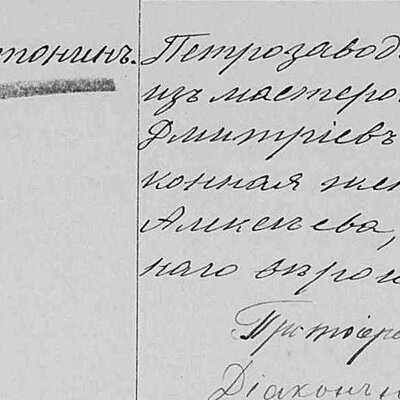 тонинъ.
Петрозавод
изъ мастеро
Дмитріевъ
конная же
Алексѣева,
наго вѣро
Протоіере
Діаконъ